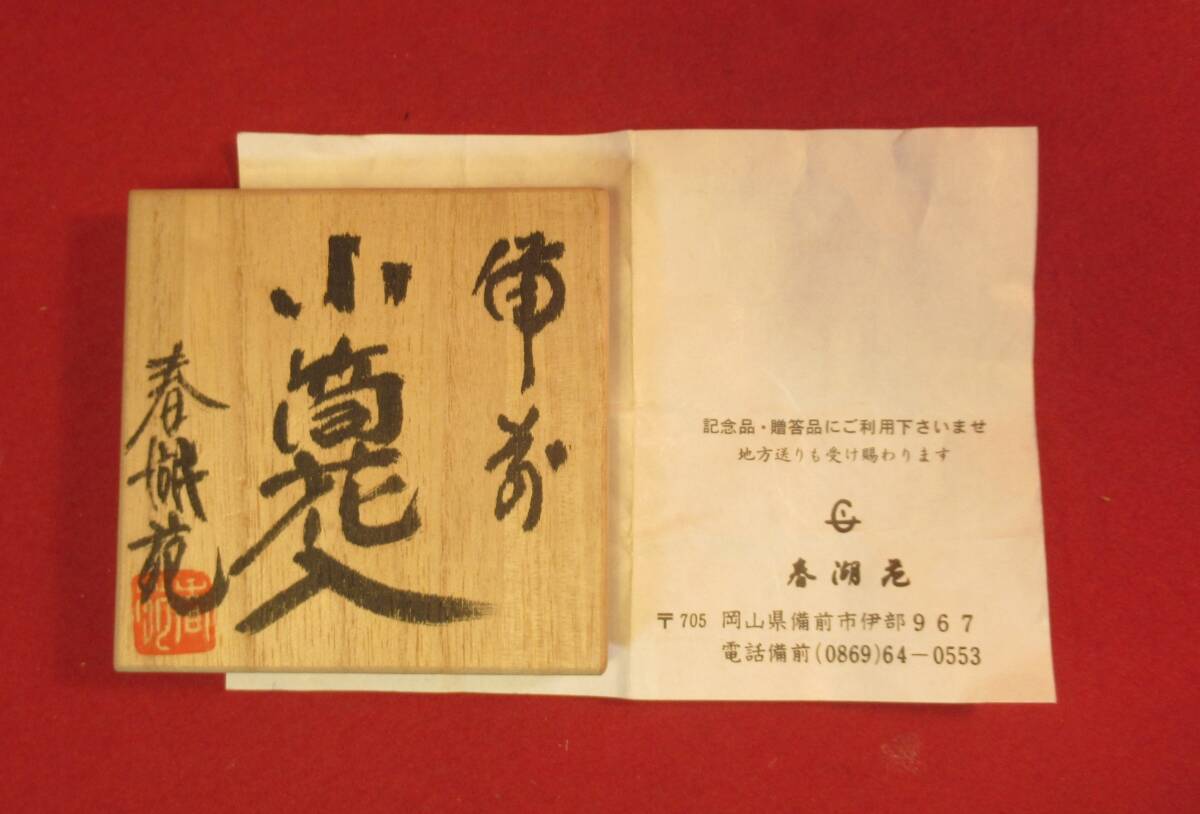 備前
小筒花入
春湖苑
記念品・贈答品にご利用下さいませ
地方送りも受け賜わります
春湖苑
〒705 岡山県備前市伊部967
電話備前(0869)64-0553